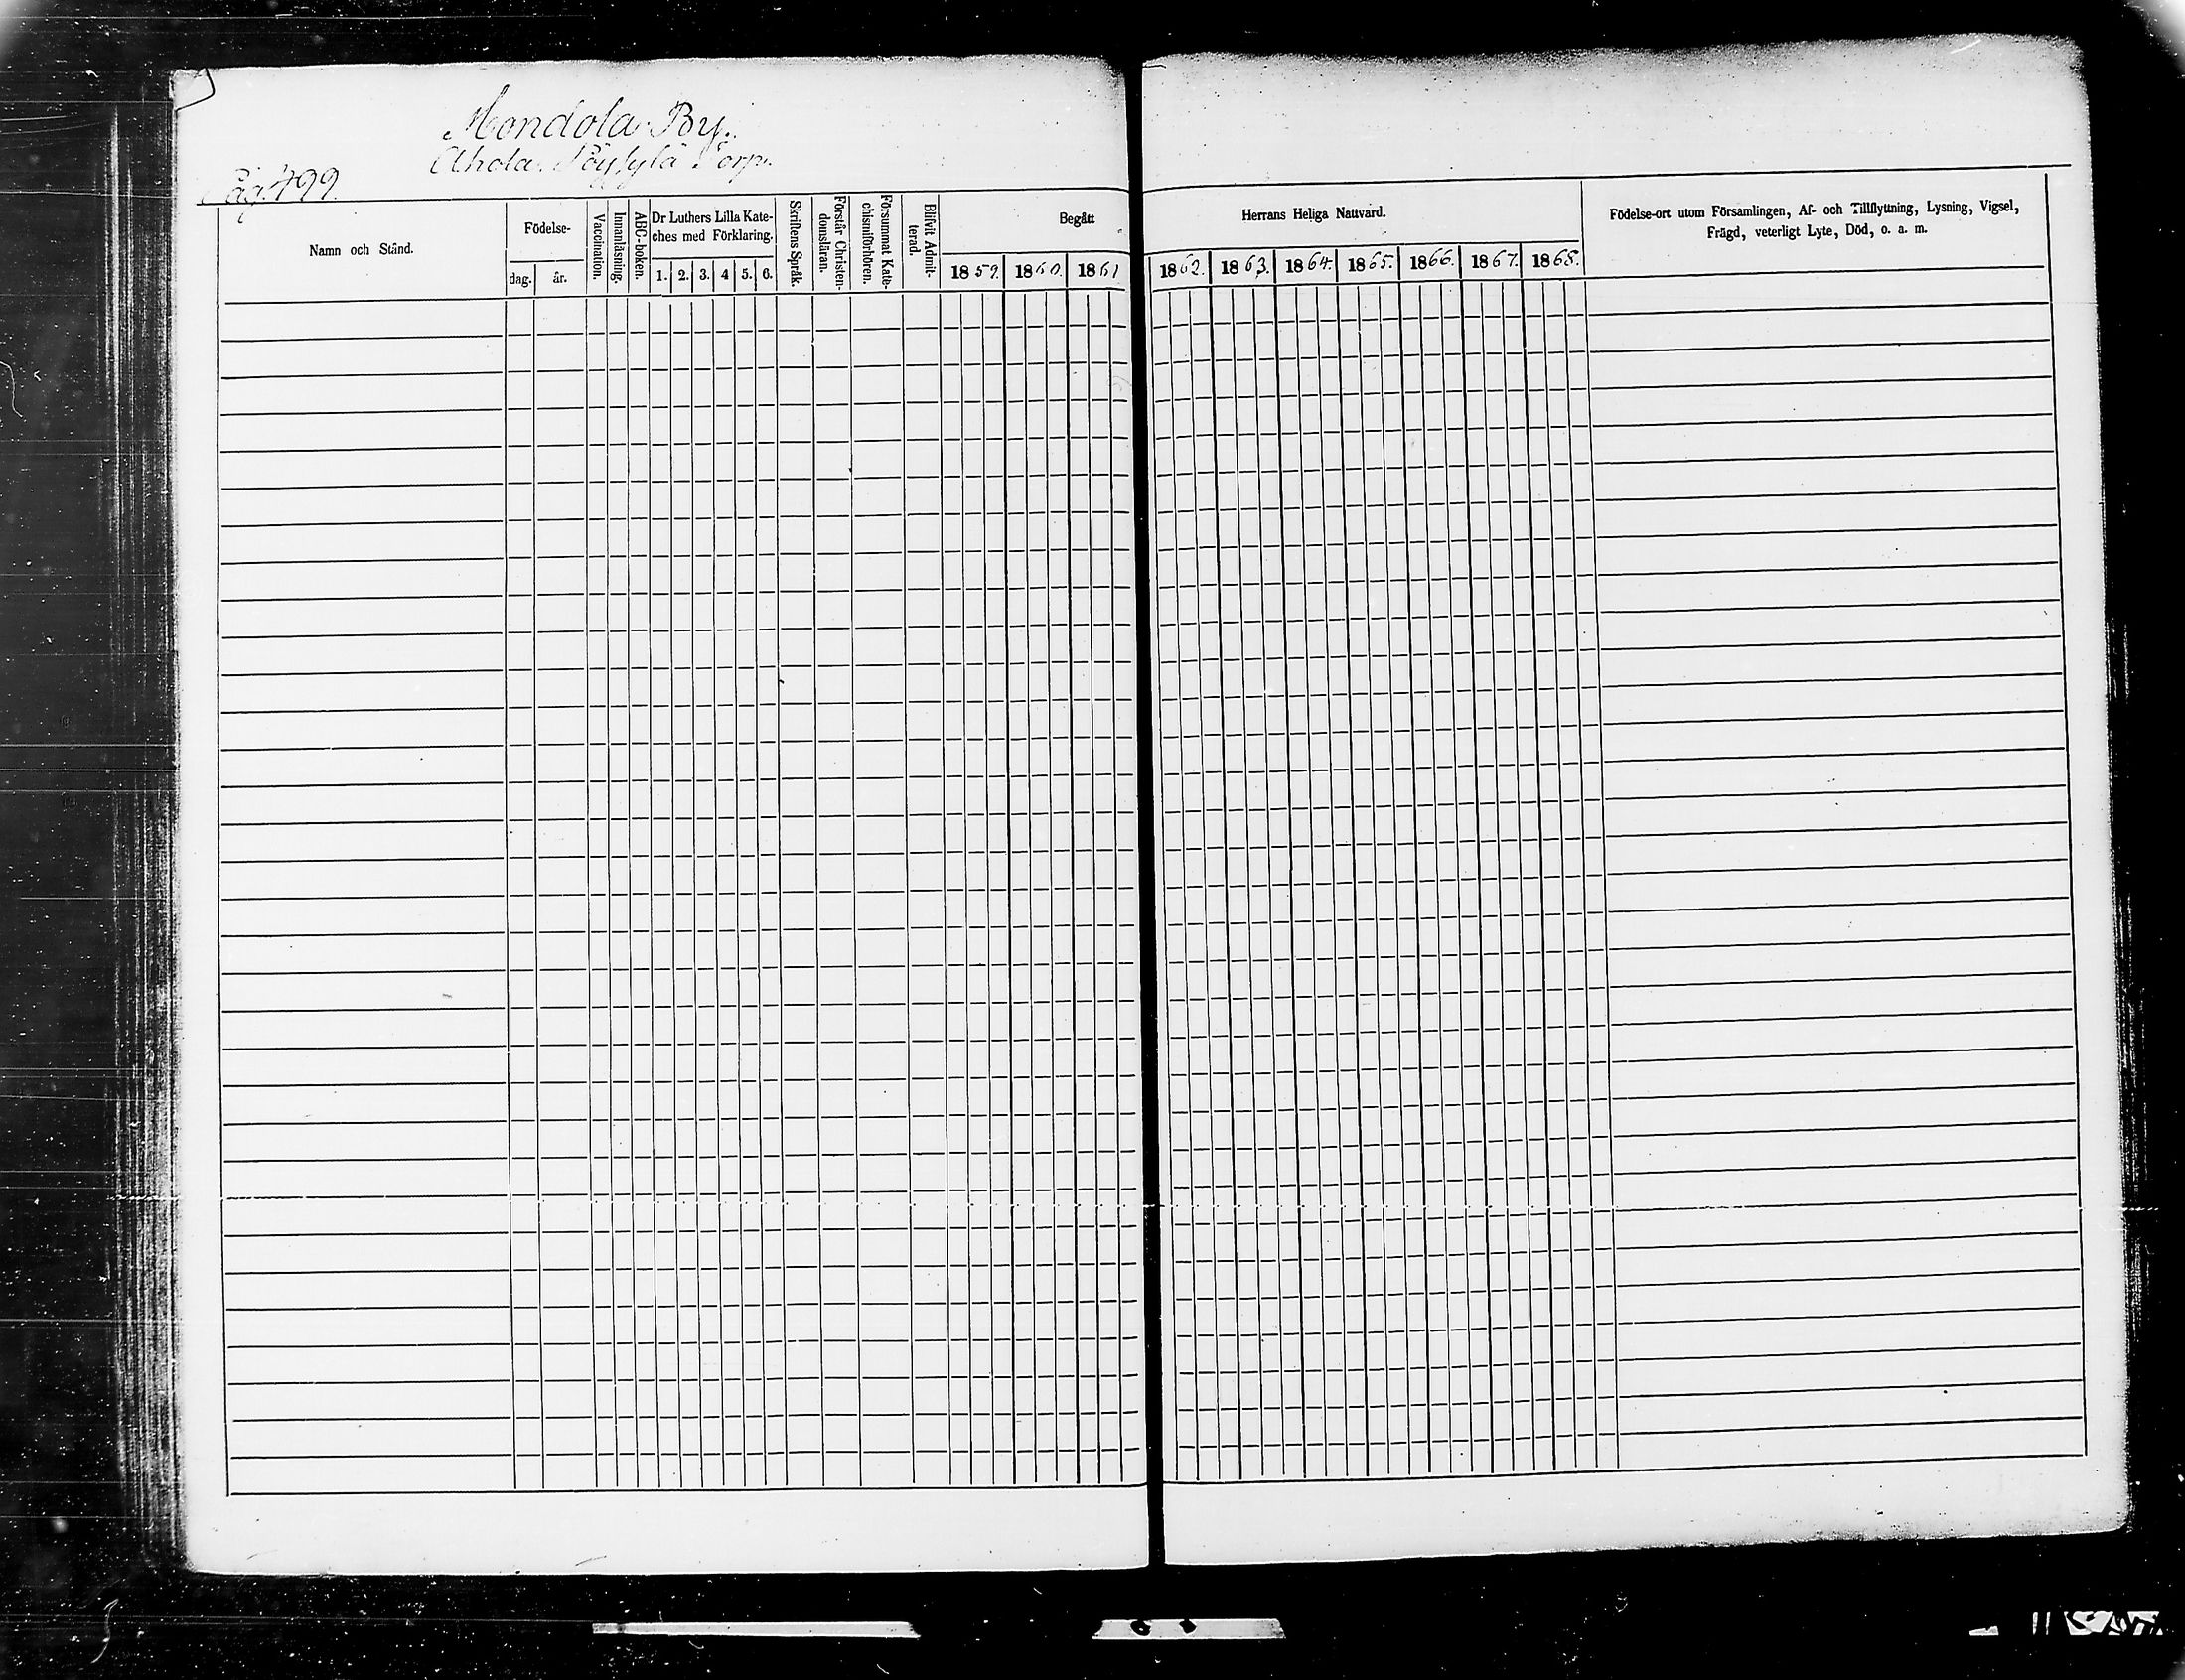 Mondola By.
Ahola Torp.
Pag. 499.
Namn och Stånd.
Födelse-
dag.
år.
Vaccination.
Innanläsning.
ABC-boken.
Dr Luthers Lilla Kate-
ches med Förklaring.
1. 2. 3. 4 5. 6.
Skriftens Språk.
Förstår Christen-
domsläran.
Försummat Kate-
chismiförhören.
Blifvit Admit-
terad.
Begått
1859. 1860. 1861
Herrans Heliga Nattvard.
1862. 1863. 1864. 1865. 1866. 1867. 1868.
Födelse-ort utom Församlingen, Af- och Tillflyttning, Lysning, Vigsel,
Frägd, veterligt Lyte, Död, o. a. m.